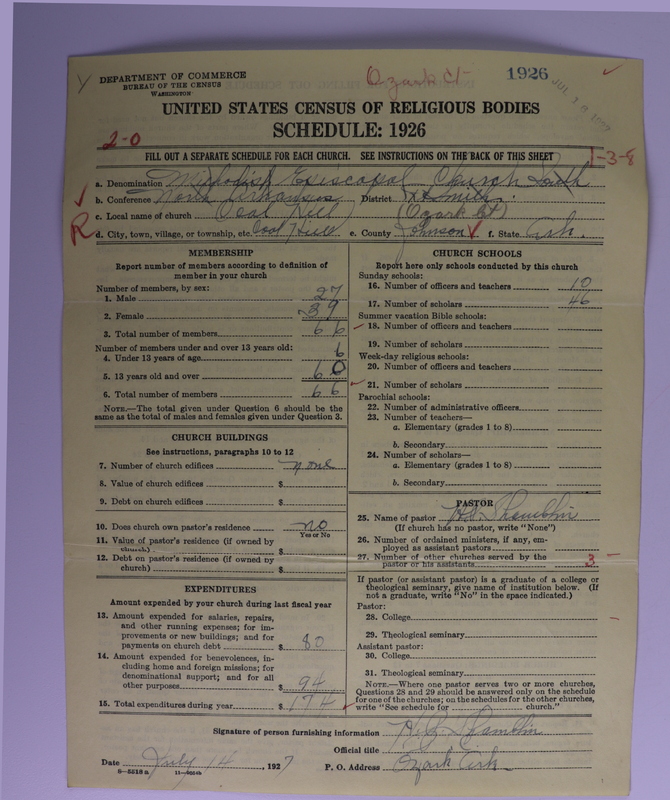 Ozark Ct
1926
JUL 18 1927
DEPARTMENT OF COMMERCE
BUREAU OF THE CENSUS
WASHINGTON
UNITED STATES CENSUS OF RELIGIOUS BODIES
SCHEDULE: 1926
2-0
FILL OUT A SEPARATE SCHEDULE FOR EACH CHURCH. SEE INSTRUCTIONS ON THE BACK OF THIS SHEET
1-3-8
a. Denomination Methodist Episcopal Church South
b. Conference North Arkansas District Ft Smith
c. Local name of church Coal Hill (Ozark Ct)
R
d. City, town, village, or township, etc. Coal Hill e. County Johnson f. State Ark.
MEMBERSHIP
Report number of members according to definition of
member in your church
Number of members, by sex:
1. Male 27
2. Female 39
3. Total number of members 66
Number of members under and over 13 years old:
4. Under 13 years of age 6
5. 13 years old and over 60
6. Total number of members 66
NOTE.—The total given under Question 6 should be the
same as the total of males and females given under Question 3.
CHURCH BUILDINGS
See instructions, paragraphs 10 to 12
7. Number of church edifices none
8. Value of church edifices $
9. Debt on church edifices $
10. Does church own pastor's residence no
Yes or No
11. Value of pastor's residence (if owned by
church) $
12. Debt on pastor's residence (if owned by
church) $
EXPENDITURES
Amount expended by your church during last fiscal year
13. Amount expended for salaries, repairs,
and other running expenses; for im-
provements or new buildings; and for
payments on church debt $ 80
14. Amount expended for benevolences, in-
cluding home and foreign missions; for
denominational support; and for all
other purposes $ 94
15. Total expenditures during year $ 174
CHURCH SCHOOLS
Report here only schools conducted by this church
Sunday schools:
16. Number of officers and teachers 10
17. Number of scholars 46
Summer vacation Bible schools:
18. Number of officers and teachers
19. Number of scholars
Week-day religious schools:
20. Number of officers and teachers
21. Number of scholars
Parochial schools:
22. Number of administrative officers
23. Number of teachers—
a. Elementary (grades 1 to 8)
b. Secondary
24. Number of scholars—
a. Elementary (grades 1 to 8)
b. Secondary
PASTOR
25. Name of pastor Shamblin
(If church has no pastor, write "None")
26. Number of ordained ministers, if any, em-
ployed as assistant pastors
27. Number of other churches served by the
pastor or his assistants 3
If pastor (or assistant pastor) is a graduate of a college or
theological seminary, give name of institution below. (If
not a graduate, write "No" in the space indicated.)
Pastor:
28. College
29. Theological seminary
Assistant pastor:
30. College
31. Theological seminary
NOTE.—Where one pastor serves two or more churches,
Questions 28 and 29 should be answered only on the schedule
for one of the churches; on the schedules for the other churches,
write "See schedule for church."
Signature of person furnishing information Shamblin
Official title
Date July 14, 1927 P. O. Address Ozark Ark